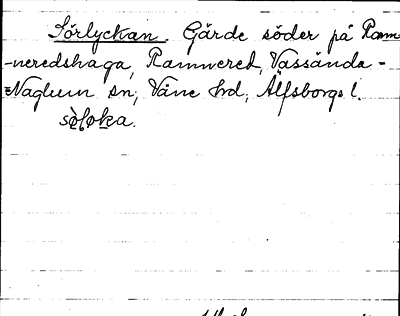 Sörlyckan. Gärde söder på Ram-
-neredshaga, Ramnered, Vassända-
-Naglum sn, Väne hd, Älfsborgs l.